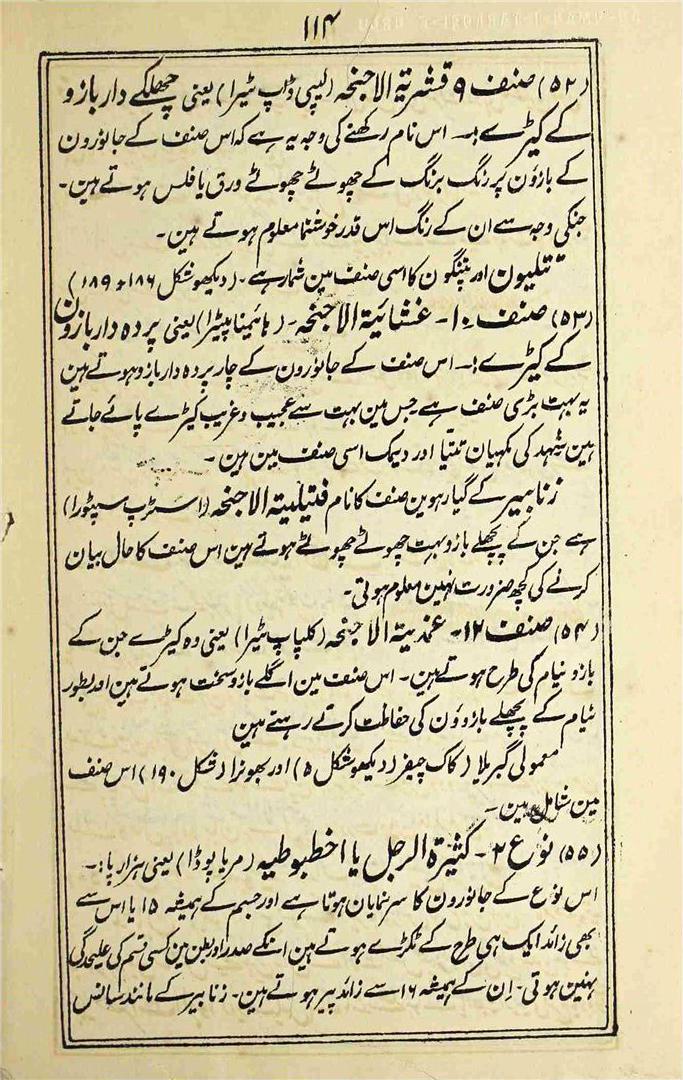 ۱۱۴
(۵۲) صنف ۹ قشریۃ الاجنحہ (لیپی ڈاپ ٹیرا) یعنی چھلکے دار بازو
کے کیڑے:۔ اس نام رکھنے کی وجہ یہ ہے کہ اس صنف کے جانورون
کے بازوٗن پر رنگ برنگ کے چھوٹے چھوٹے ورق یا فلس ہوتے ہین۔
جنکی وجہ سے ان کے رنگ اس قدر خوشنما معلوم ہوتے ہین۔
تتلیون اور پتنگون کا اسی صنف مین شمار ہے۔ (دیکھو شکل ۱۸۶ و ۱۸۹)
(۵۳) صنف ۱۰۔ غشائیۃ الاجنحہ۔ (ہائیمناپٹیرا) یعنی پردہ دار بازوٗن
کے کیڑے:۔ اس صنف کے جانورون کے چار پردہ دار بازو ہوتے ہین
یہ بہت بڑی صنف ہے جس مین بہت سے عجیب و غریب کیڑے پائے جاتے
ہین شہد کی مکہیان تتیا اور دیمک اسی صنف مین ہین۔
زنابیر کے گیارہوین صنف کا نام فتیلیۃ الاجنحہ (اسٹرپ سپٹورا)
ہے جن کے پچھلے بازو بہت چھوٹے چھوٹے ہوتے ہین اس صنف کا حال بیان
کرنے کی کچھ ضرورت نہین معلوم ہوتی۔
(۵۴) صنف ۱۲۔ غمدیۃ الاجنحہ (کلپاپ ٹیرا) یعنی وہ کیڑے جن کے
بازو نیام کی طرح ہوتے ہین۔ اس صنف مین اگلے بازو سخت ہوتے ہین اور بطور
نیام کے پچھلے بازووٗن کی حفاظت کرتے رہتے ہین
معمولی گبریلا (کاک چیفر (دیکھو شکل ۵) اور بھونرا (شکل ۱۹۰) اس صنف
مین شامل ہین۔
(۵۵) نوع ۲۔ کثیرۃ الرجل یا اخطبوطیہ (مریاپوڈا) یعنی ہزار پا:۔
اس نوع کے جانورون کا سر نمایان ہوتا ہے اور جسم کے ہمیشہ ۱۵ یا اس سے
بھی زائد ایک ہی طرح کے ٹکڑے ہوتے ہین انکے صدر اور بطن مین کسی قسم کی علیحدگی
نہین ہوتی۔ اِن کے ہمیشہ ۱۶ سے زائد پیر ہوتے ہین۔ زنابیر کے مانند سانس